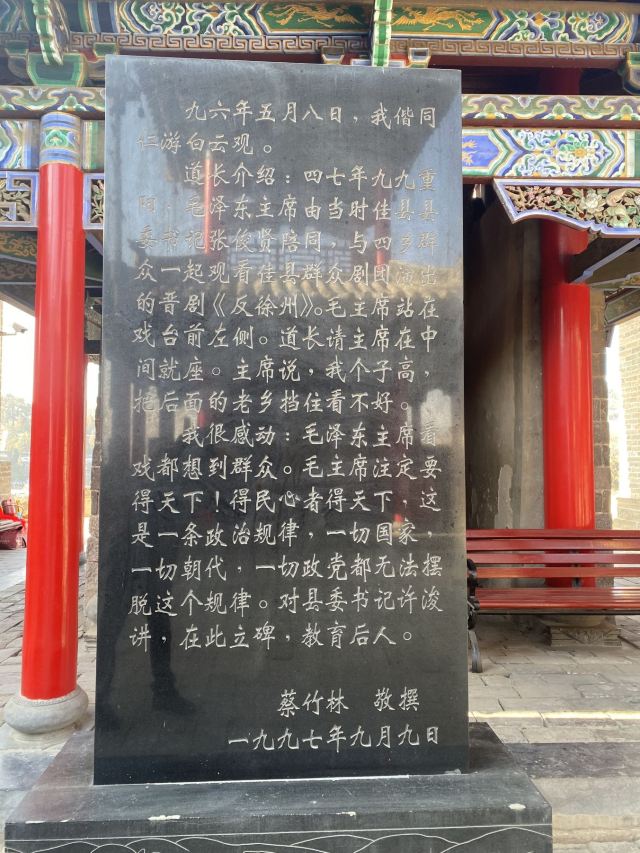 九六年五月八日，我偕同
仁游白云观。
道长介绍：四七年九九重
阳，毛泽东主席由当时佳县县
委书记张俊贤陪同，与四乡群
众一起观看佳县群众剧团演出
的晋剧《反徐州》。毛主席站在
戏台前左侧。道长请主席在中
间就座。主席说，我个子高，
把后面的老乡挡住看不好。
我很感动：毛泽东主席看
戏都想到群众。毛主席注定要
得天下！得民心者得天下，这
是一条政治规律，一切国家，
一切朝代，一切政党都无法摆
脱这个规律。对县委书记许浚
讲，在此立碑，教育后人。
蔡竹林 敬撰
一九九七年九月九日